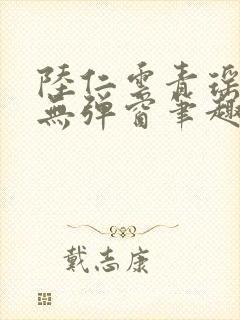 陸仁雲青瑤
無彈窗筆趣
戴志康